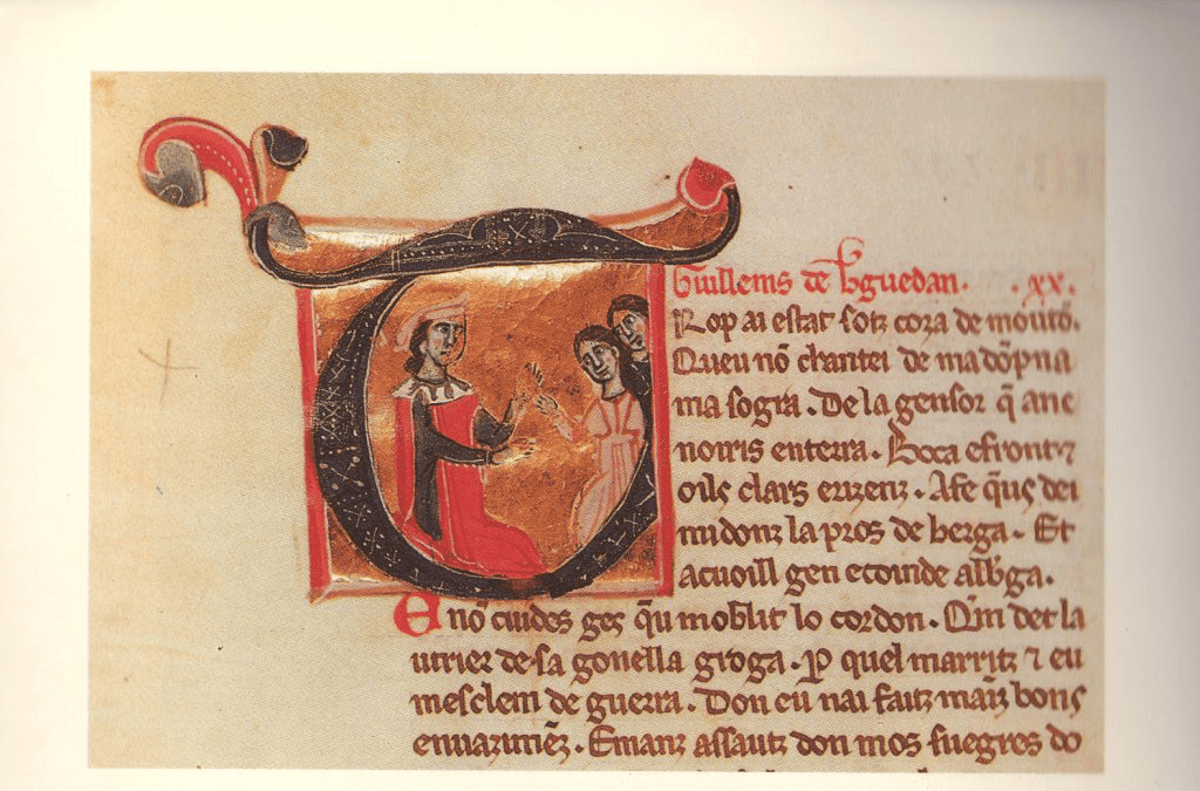 Guillems de b̾guedan. .xx.
Rop ai estat sotz coza de moutõ.
Queu nõ chantei de ma dõpna
ma sogra. De la gensor q̃ anc
noiris en terra. Boca e front ⁊
oils clars erizenz. Afe q̃us dei
midonz la pros de berga. Et
acuoill gen ecoinde alb̾ga.
E nõ cuides ges q̃u moblit lo cordon. Qim det la
utrier de sa gonella groga. P quel marritz ⁊ eu
mesclem de guerra. Don eu nai faitz mainz bons
enuazimẽz. Emanz assautz don mos suegres do